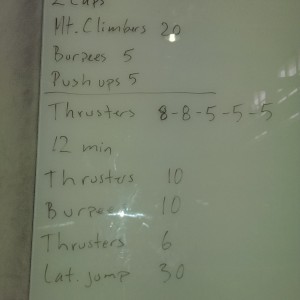 2 Laps
Mt. Climbers 20
Burpees 5
Push ups 5
Thrusters 8-8-5-5-5
12 min
Thrusters 10
Burpees 10
Thrusters 6
Lat. jump 30